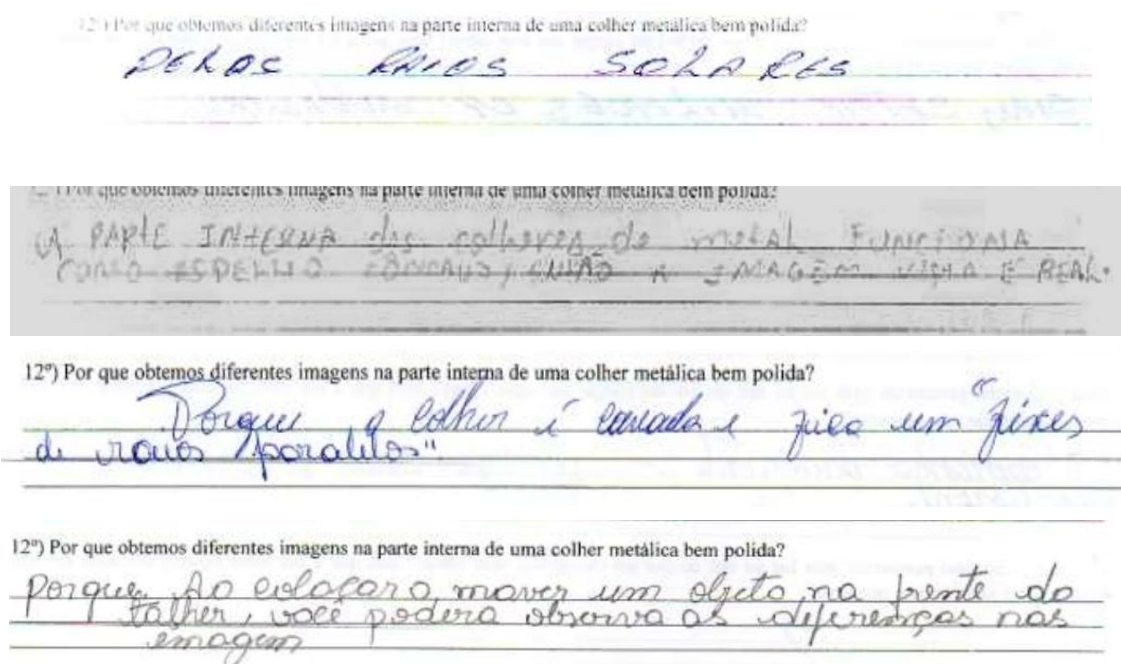 12º) Por que obtemos diferentes imagens na parte interna de uma colher metálica bem polida?
PELOS RAIOS SOLARES
12º) Por que obtemos diferentes imagens na parte interna de uma colher metálica bem polida?
A PARTE INTERNA das colheres de metAL FUNCIONA
COMO ESPELHO CÔNCAVO, ENTÃO A IMAGEM VISTA É REAL.
12º) Por que obtemos diferentes imagens na parte interna de uma colher metálica bem polida?
Porque a colher é cavada e fica um "feixes
de raios paralelos".
12º) Por que obtemos diferentes imagens na parte interna de uma colher metálica bem polida?
Porque, Ao colocar o, mover um objeto na frente do
talher, você podera observa as diferenças nas
emagem